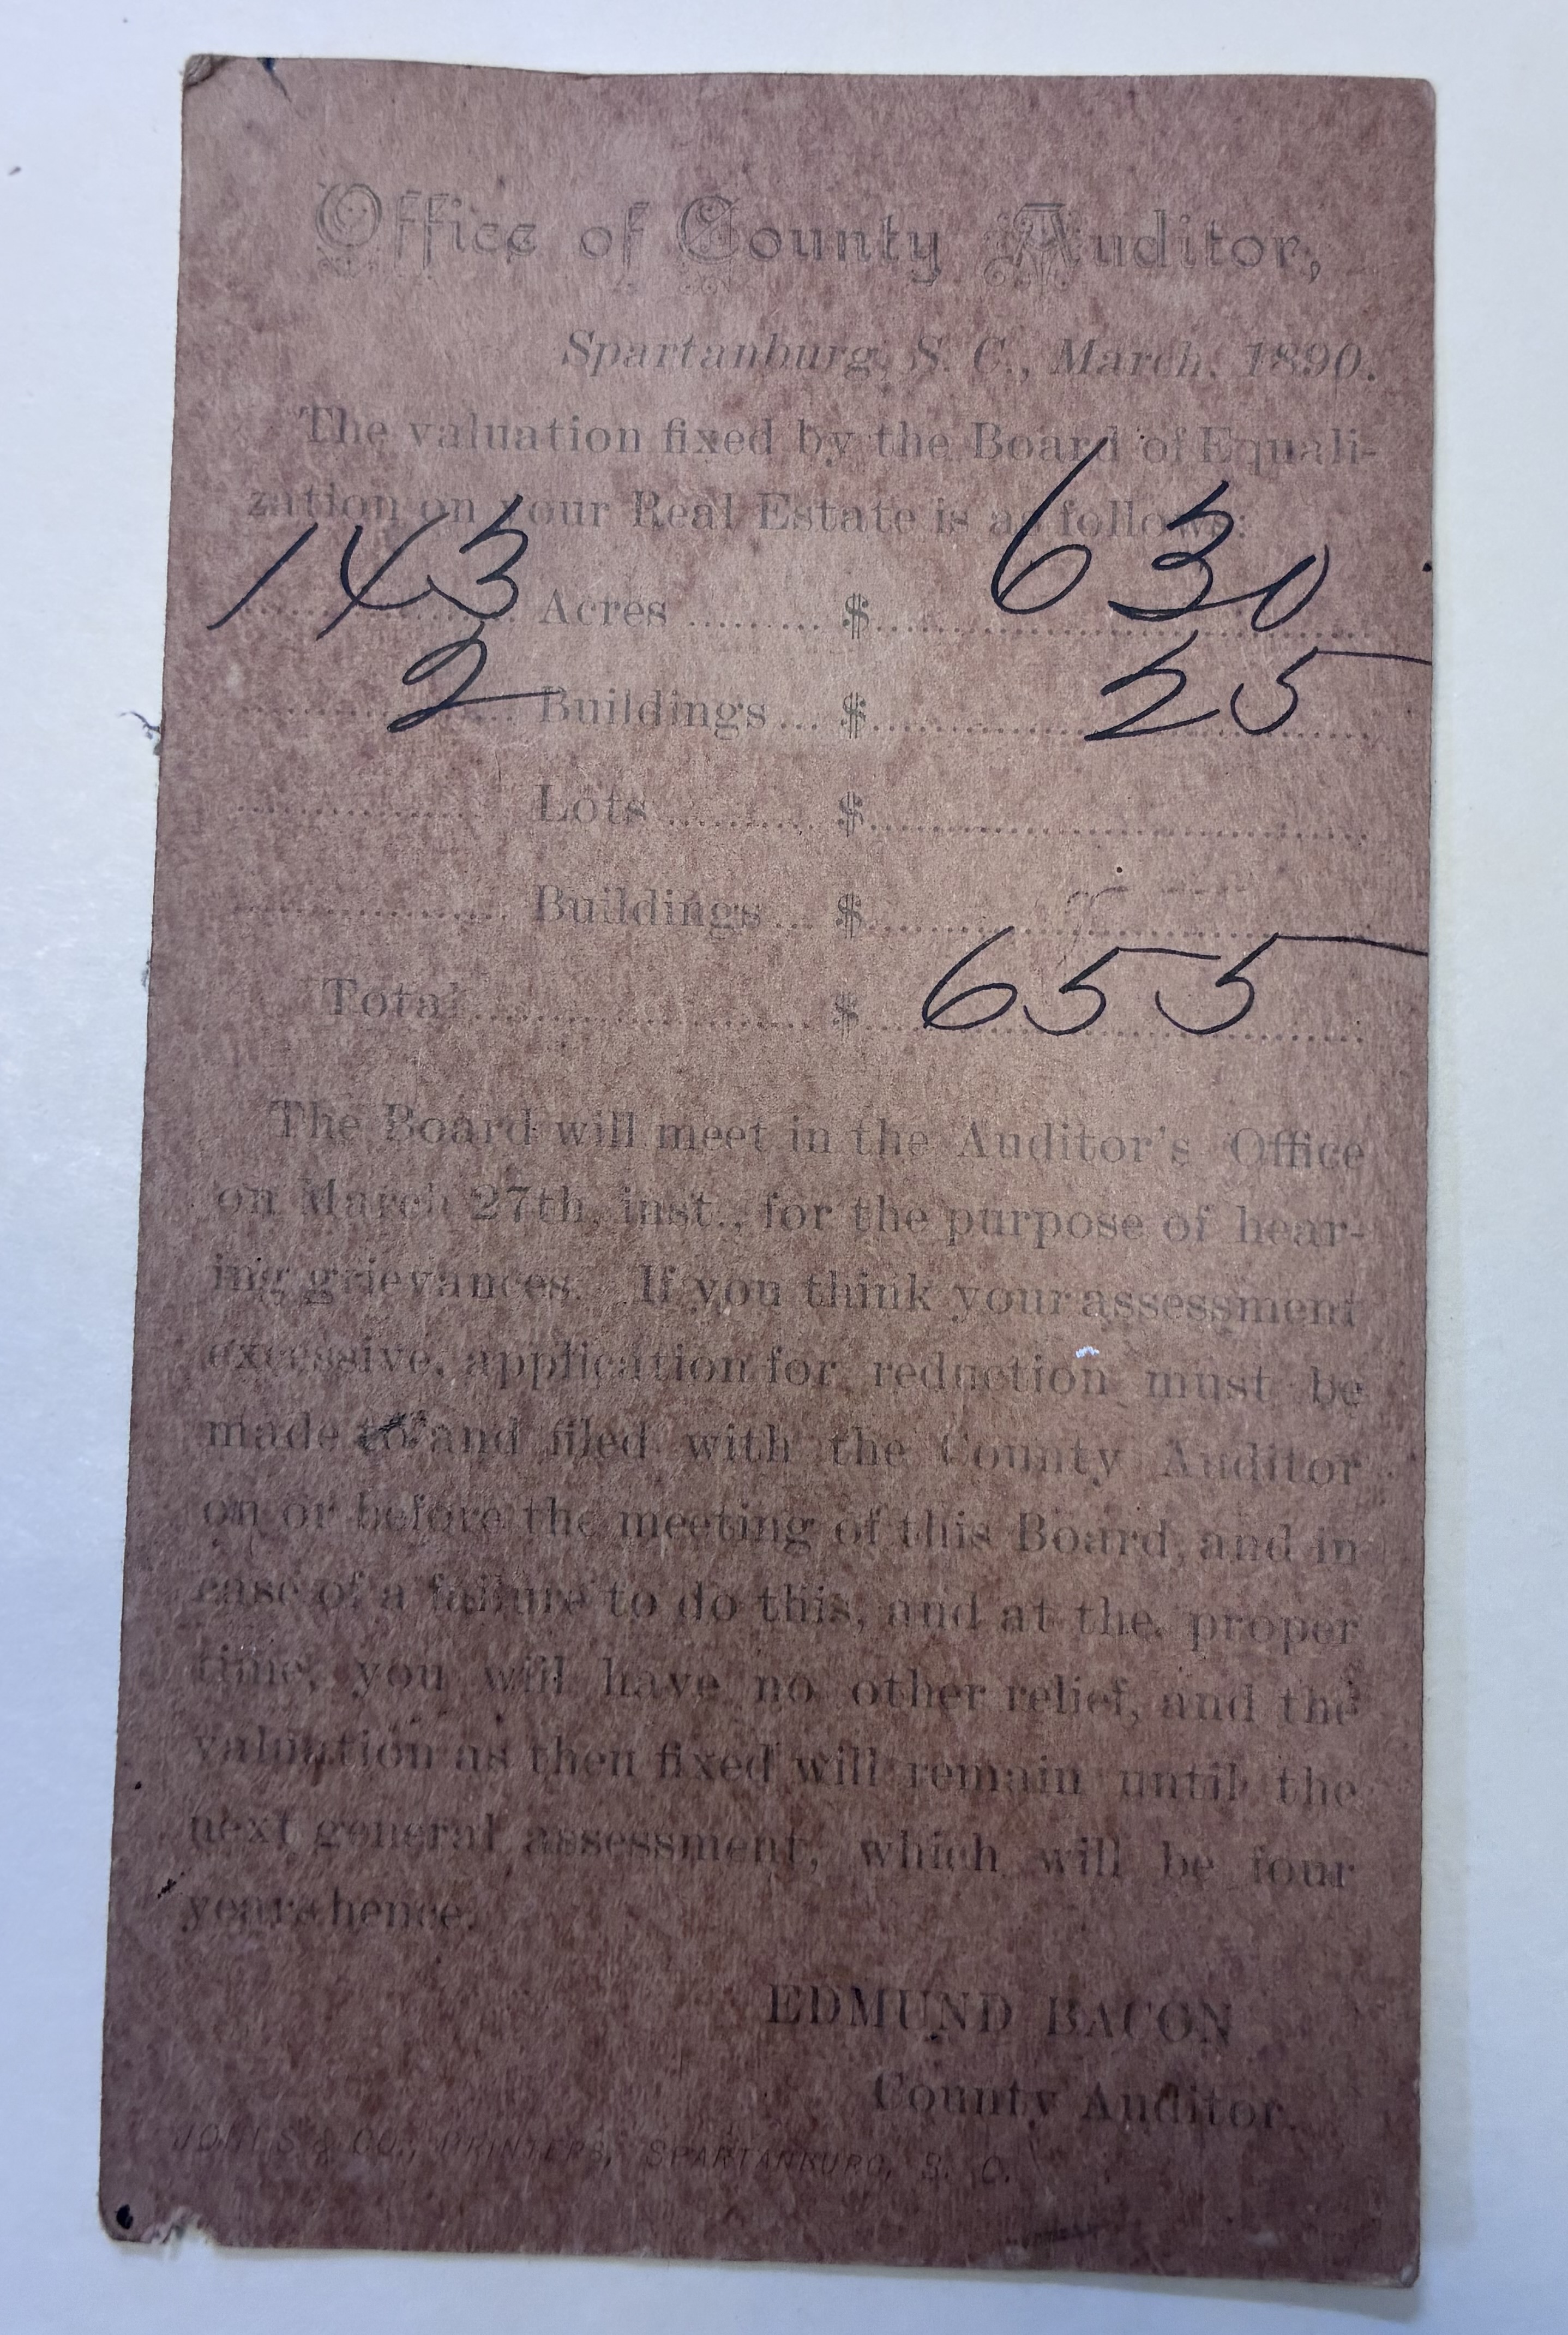 Office of County Auditor,
Spartanburg, S. C., March, 1890.
The valuation fixed by the Board of Equali-
zation on your Real Estate is as follows:
143 Acres $ 630
2 Buildings $ 25
Lots $
Buildings $
Total $ 655
The Board will meet in the Auditor's Office
on March 27th, inst., for the purpose of hear-
ing grievances. If you think your assessment
excessive, application for reduction must be
made to and filed with the County Auditor
on or before the meeting of this Board, and in
case of a failure to do this, and at the proper
time, you will have no other relief, and the
valuation as then fixed will remain until the
next general assessment, which will be four
years hence.
EDMUND BACON
County Auditor.
& CO., PRINTERS, SPARTANBURG, S. C.